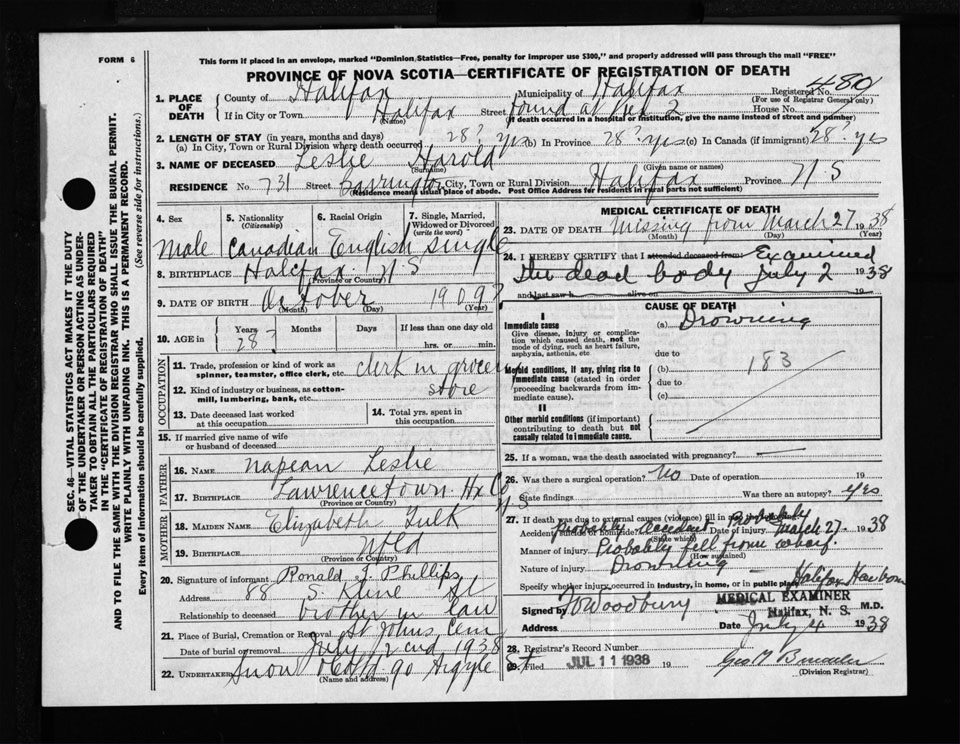 FORM 6
This form if placed in an envelope, marked "Dominion Statistics—Free, penalty for improper use $300," and properly addressed will pass through the mail "FREE"
PROVINCE OF NOVA SCOTIA—CERTIFICATE OF REGISTRATION OF DEATH
1. PLACE OF DEATH
County of Halifax Municipality of Halifax Registered No. 480
(For use of Registrar General only)
If in City or Town Halifax Street found at Pier 2 House No.
(Name) (If death occurred in a hospital or institution, give the name instead of street and number)
2. LENGTH OF STAY (in years, months and days)
(a) In City, Town or Rural Division where death occurred 28? yrs (b) In Province 28? yrs (c) In Canada (if immigrant) 28? yrs
3. NAME OF DECEASED Leslie Harold
(Surname) (Given name or names)
RESIDENCE No. 731 Street Barrington City, Town or Rural Division Halifax Province N S
(Residence means usual place of abode. Post Office Address for residents in rural parts not sufficient)
4. Sex
Male
5. Nationality
(Citizenship)
Canadian
6. Racial Origin
English
7. Single, Married, Widowed or Divorced
(write the word)
single
8. BIRTHPLACE Halifax N S
(Province or Country)
9. DATE OF BIRTH October 1909?
(Month) (Day) (Year)
10. AGE in
Years Months Days If less than one day old
28? hrs. or min.
OCCUPATION
11. Trade, profession or kind of work as spinner, teamster, office clerk, etc. clerk in grocery
12. Kind of industry or business, as cotton-mill, lumbering, bank, etc. store
13. Date deceased last worked at this occupation
14. Total yrs. spent in this occupation
15. If married give name of wife or husband of deceased
FATHER
16. NAME Napean Leslie
17. BIRTHPLACE Lawrencetown Hx Co N S
(Province or Country)
MOTHER
18. MAIDEN NAME Elizabeth Tulk
19. BIRTHPLACE Nfld
(Province or Country)
20. Signature of informant Ronald J Phillips
Address 88 S. Kline St
Relationship to deceased brother in law
21. Place of Burial, Cremation or Removal St Johns Cem
Date of burial or removal July 2nd 1938
22. UNDERTAKER Snow & Co Ltd 90 Argyle St
(Name and address)
MEDICAL CERTIFICATE OF DEATH
23. DATE OF DEATH Missing from March 27 1938
(Month) (Day) (Year)
24. I HEREBY CERTIFY that I attended deceased from: Examined
the dead body July 2 1938
and last saw h alive on 19
CAUSE OF DEATH
I
Immediate cause
Give disease, injury or complication which caused death, not the mode of dying, such as heart failure, asphyxia, asthenia, etc.
(a) Drowning
due to
Morbid conditions, if any, giving rise to immediate cause (stated in order proceeding backwards from immediate cause).
(b) 183
due to
(c)
II
Other morbid conditions (if important) contributing to death but not causally related to immediate cause.
25. If a woman, was the death associated with pregnancy? —
26. Was there a surgical operation? No Date of operation 19
State findings Was there an autopsy? Yes
27. If death was due to external causes (violence) fill in also the following
Accident, suicide or homicide? Probably accident Date of injury Probably March 27 1938
(State which)
Manner of injury Probably fell from wharf
(How sustained)
Nature of injury Drowning
Specify whether injury occurred in industry, in home, or in public place Halifax Harbour
Signed by Woodbury M.D.
MEDICAL EXAMINER
Halifax, N. S.
Address Date July 4 1938
28. Registrar's Record Number
29. Filed JUL 11 1938 19
(Division Registrar)
SEC. 46—VITAL STATISTICS ACT MAKES IT THE DUTY
OF THE UNDERTAKER OR PERSON ACTING AS UNDER-
TAKER TO OBTAIN ALL THE PARTICULARS REQUIRED
IN THE "CERTIFICATE OF REGISTRATION OF DEATH"
AND TO FILE THE SAME WITH THE DIVISION REGISTRAR WHO SHALL ISSUE THE BURIAL PERMIT.
WRITE PLAINLY WITH UNFADING INK. THIS IS A PERMANENT RECORD.
Every item of Information should be carefully supplied. (See reverse side for instructions.)